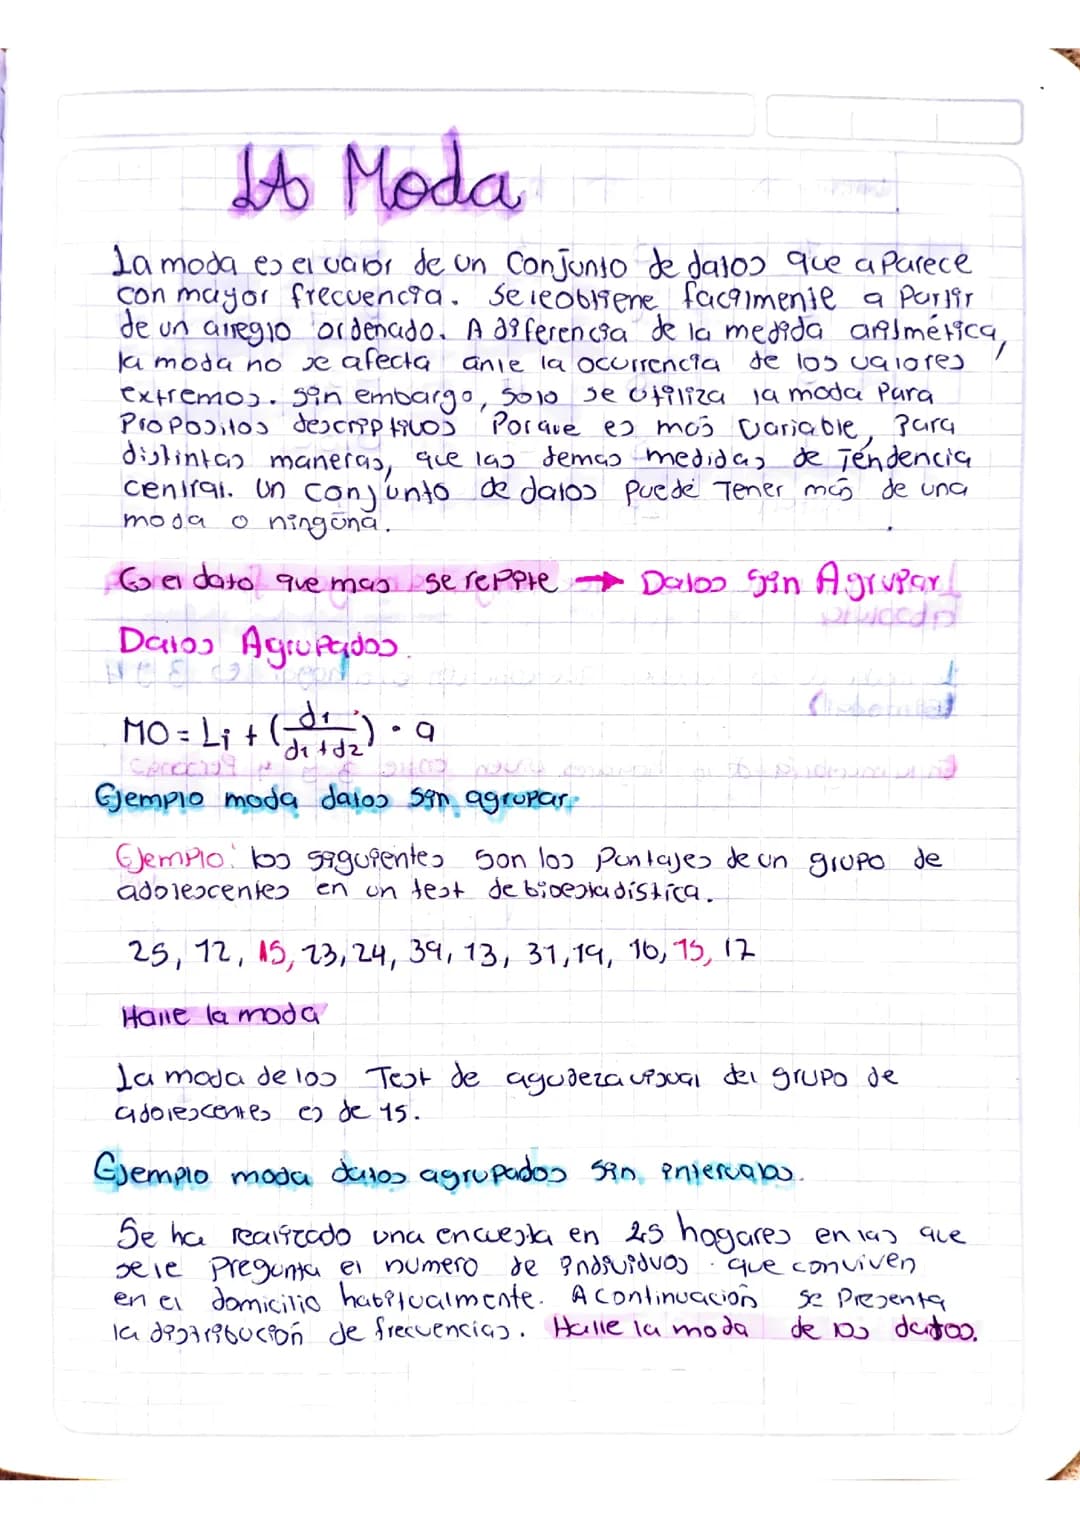 LA Moda
La moda es el valor de un Conjunto de datos que aparece
con mayor frecuencia. Se le obtiene facilmente a Partir
de un arreglo ordenado. A diferencia de la medida arismética,
la moda no se afecta ante la ocurrencia de los valores
extremos. sin embargo, solo se utiliza la moda Para
Propositos descriptivos Porque es más Variable, Para
distintas maneras, que las demas medidas de Tendencia
central. Un conjunto de datos puede Tener más de una
moda o ninguna.
Es el dato que mas se repite → Datos Sin Agrupar
Datos Agrupados.
MO = Li + (d1 / d1 + d2) · a
Ejemplo moda datos sin agrupar
Ejemplo: los siguientes son los Puntajes de un grupo de
adolescentes en un test de bioestadística.
25, 12, 15, 23, 24, 39, 13, 31, 19, 16, 15, 12
Halle la moda
La moda de los Test de agudeza visual del grupo de
adolescentes es de 15.
Ejemplo moda datos agrupados sin intervalos.
Se ha realizado una encuesta en 25 hogares en las que
se le Pregunta el numero de individuos que conviven
en el domicilio habitualmente. A continuación se Presenta
la distribución de frecuencias. Halle la moda de los datos.